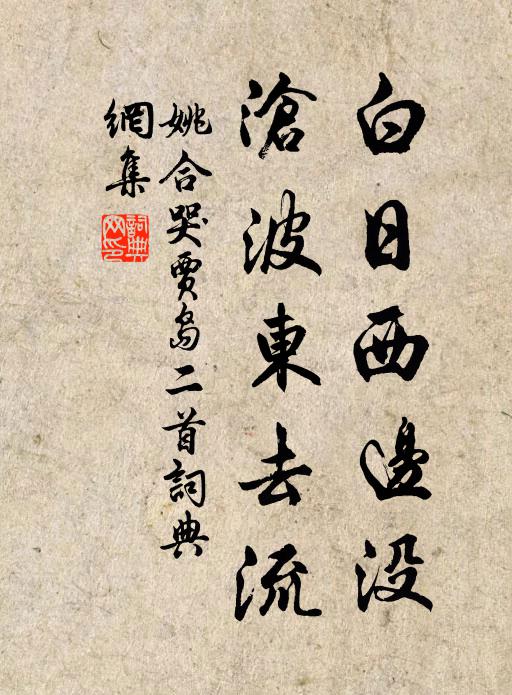 白日西邊没
滄波東去流
姚合哭賈島二首詞典
網集
詞典網印